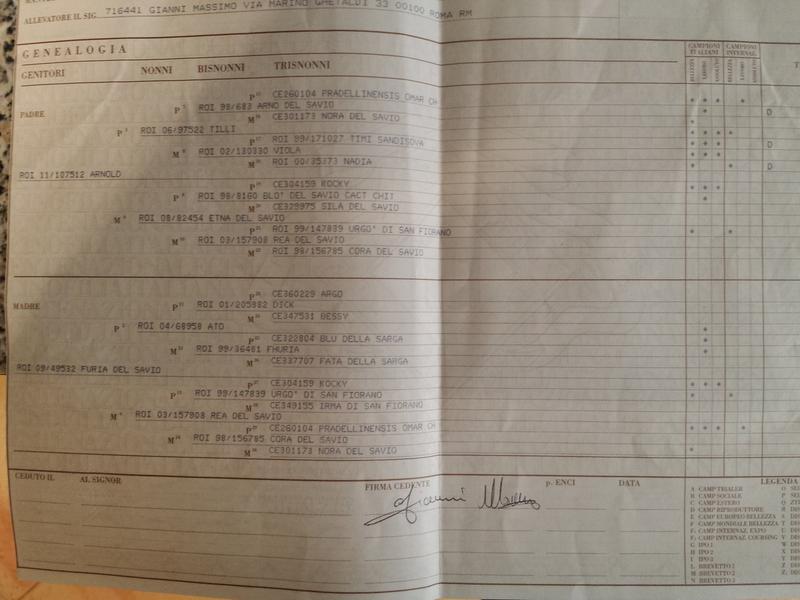 ALLEVATORE IL SIG. 716441 GIANNI MASSIMO VIA MARINO GHETALDI 33 00100 ROMA RM
GENEALOGIA
CAMPIONI ITALIANI CAMPIONI INTERNAZ.
GENITORI NONNI BISNONNI TRISNONNI
BELLEZZA LAVORO ASSOLUTO BELLEZZA LAVORO ASSOLUTO
P CE260104 PRADELLINENSIS OMAR CH
P ROI 98/683 ARNO DEL SAVIO
PADRE M CE301173 NORA DEL SAVIO
P ROI 06/97522 TILLI
P ROI 99/171027 TIMI SANDISOVA
M ROI 02/130330 VIOLA
M ROI 00/35373 NADIA
ROI 11/107512 ARNOLD
P CE304159 KOCKY
P ROI 98/8160 BLO' DEL SAVIO CACT CHIT
M CE329975 SILA DEL SAVIO
M ROI 08/82454 ETNA DEL SAVIO
P ROI 99/147839 URGO' DI SAN FIORANO
M ROI 03/157908 REA DEL SAVIO
M ROI 98/156785 CORA DEL SAVIO
P CE360229 ARGO
MADRE P ROI 01/205982 DICK
M CE347531 BESSY
P ROI 04/68958 ATO
P CE322804 BLU DELLA SARGA
M ROI 99/36481 FHURIA
M CE337707 FATA DELLA SARGA
ROI 09/49532 FURIA DEL SAVIO
P CE304159 KOCKY
P ROI 99/147839 URGO' DI SAN FIORANO
M CE349155 IRMA DI SAN FIORANO
M ROI 03/157908 REA DEL SAVIO
P CE260104 PRADELLINENSIS OMAR CH
M ROI 98/156785 CORA DEL SAVIO
M CE301173 NORA DEL SAVIO
CEDUTO IL AL SIGNOR FIRMA CEDENTE p. ENCI DATA LEGENDA
Gianni Massimo
A CAMP TRIALER
B CAMP SOCIALE
C CAMP ESTERO
D CAMP RIPRODUTTORE
E CAMP EUROPEO BELLEZZA
F CAMP MONDIALE BELLEZZA
F1 CAMP INTERNAZ. EXPO
F2 CAMP INTERNAZ COURSING
G IPO 1
H IPO 2
I IPO 3
L BREVETTO 1
M BREVETTO 2
N BREVETTO 3